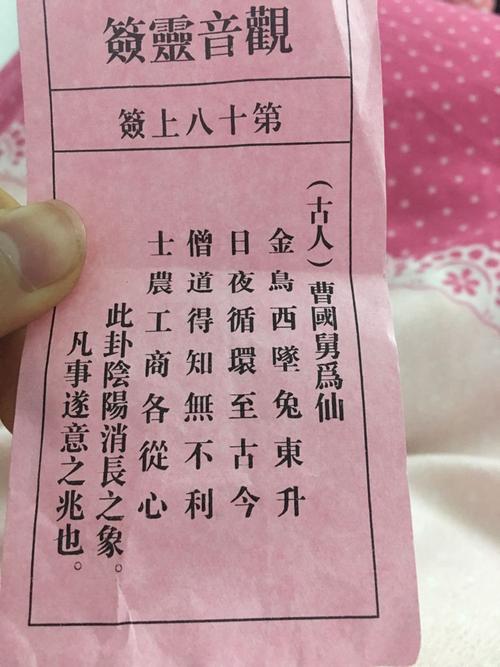 觀音靈簽
第十八上簽
(古人)曹國舅爲仙
金烏西墜兔東升
日夜循環至古今
僧道得知無不利
士農工商各從心
此卦陰陽消長之象。
凡事遂意之兆也。